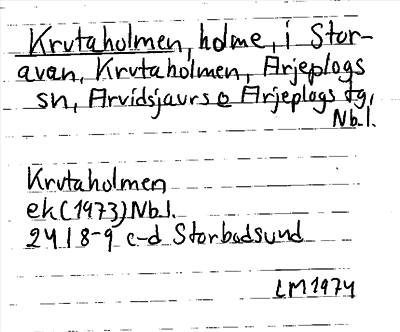 Krutaholmen, holme, i Stor-
avan, Krutaholmen, Arjeplogs
sn, Arvidsjaurs o Arjeplogs tg,
Nb.l.
Krutaholmen
ek (1973) Nb l.
24 I 8-9 c-d Storbodsund
LM 1974